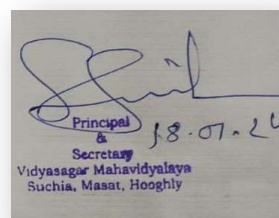 Principal 18.01.24
&
Secretary
Vidyasagar Mahavidyalaya
Suchia, Masat, Hooghly